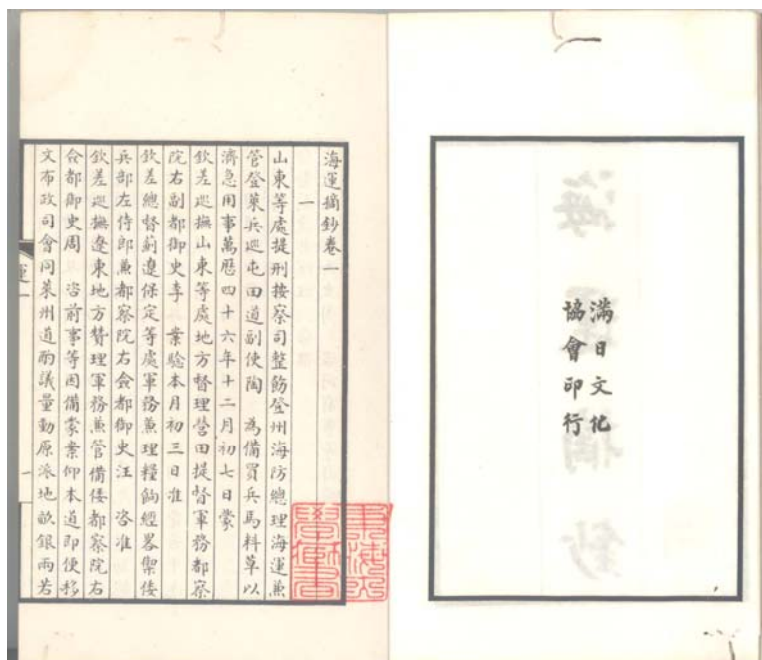 滿日文化
協會印行
海運摘鈔卷一
一
山東等處提刑按察司整飭登州海防總理海運兼
管登萊兵巡屯田道副使陶 為備買兵馬料草以
濟急用事萬曆四十六年十二月初七日蒙
欽差巡撫山東等處地方督理營田提督軍務都察
院右副都御史李 案驗本月初三日准
欽差總督薊遼保定等處軍務兼理糧餉經畧禦倭
兵部左侍郎兼都察院右僉都御史汪 咨准
欽差巡撫遼東地方贊理軍務兼管備倭都察院右
僉都御史周 咨前事等因備蒙案仰本道即便移
文布政司會同萊州道酌議量動原派地畝銀兩若
運一
一